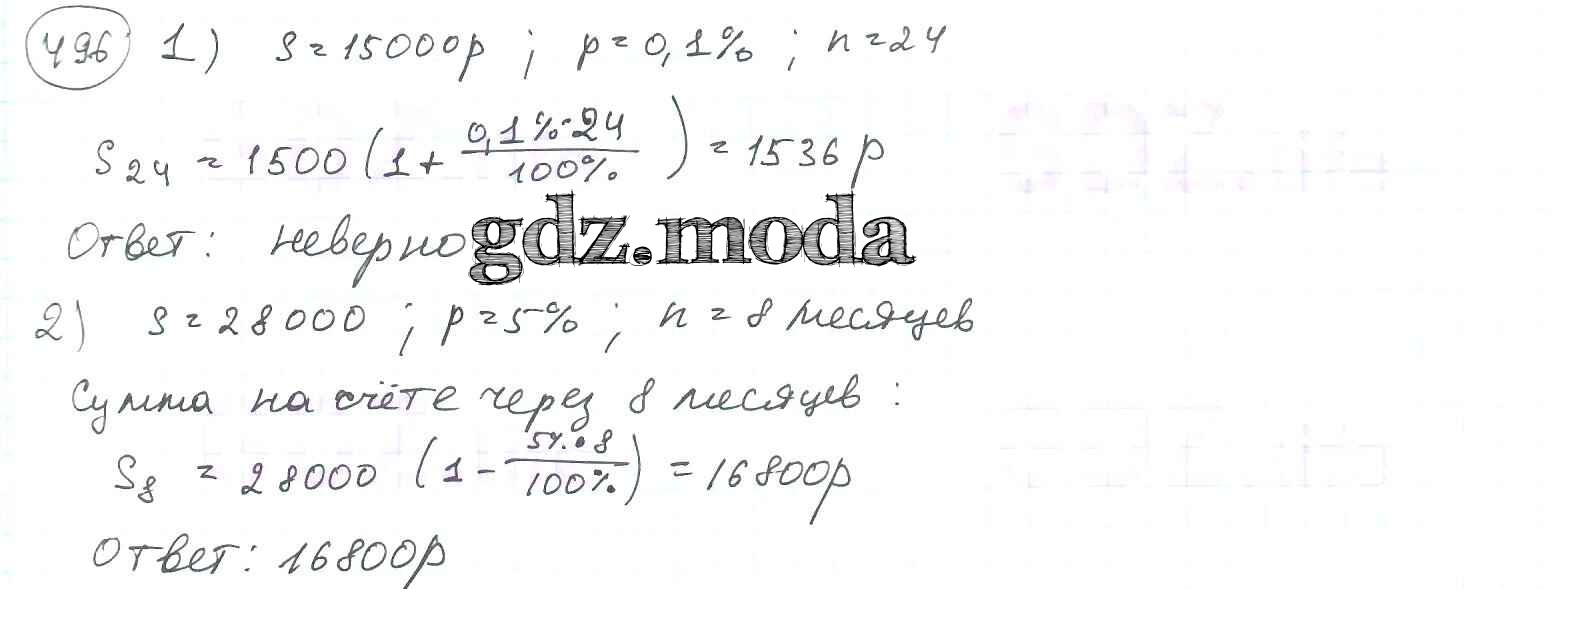 496 1) S = 15000р ; p = 0,1% ; n = 24
S₂₄ = 1500 (1 + 0,1%·24 / 100%) = 1536 р
Ответ: неверно gdz.moda
2) S = 28000 ; p = 5% ; n = 8 месяцев
Сумма на счёте через 8 месяцев :
S₈ = 28000 (1 - 5%·8 / 100%) = 16800р
Ответ: 16800р